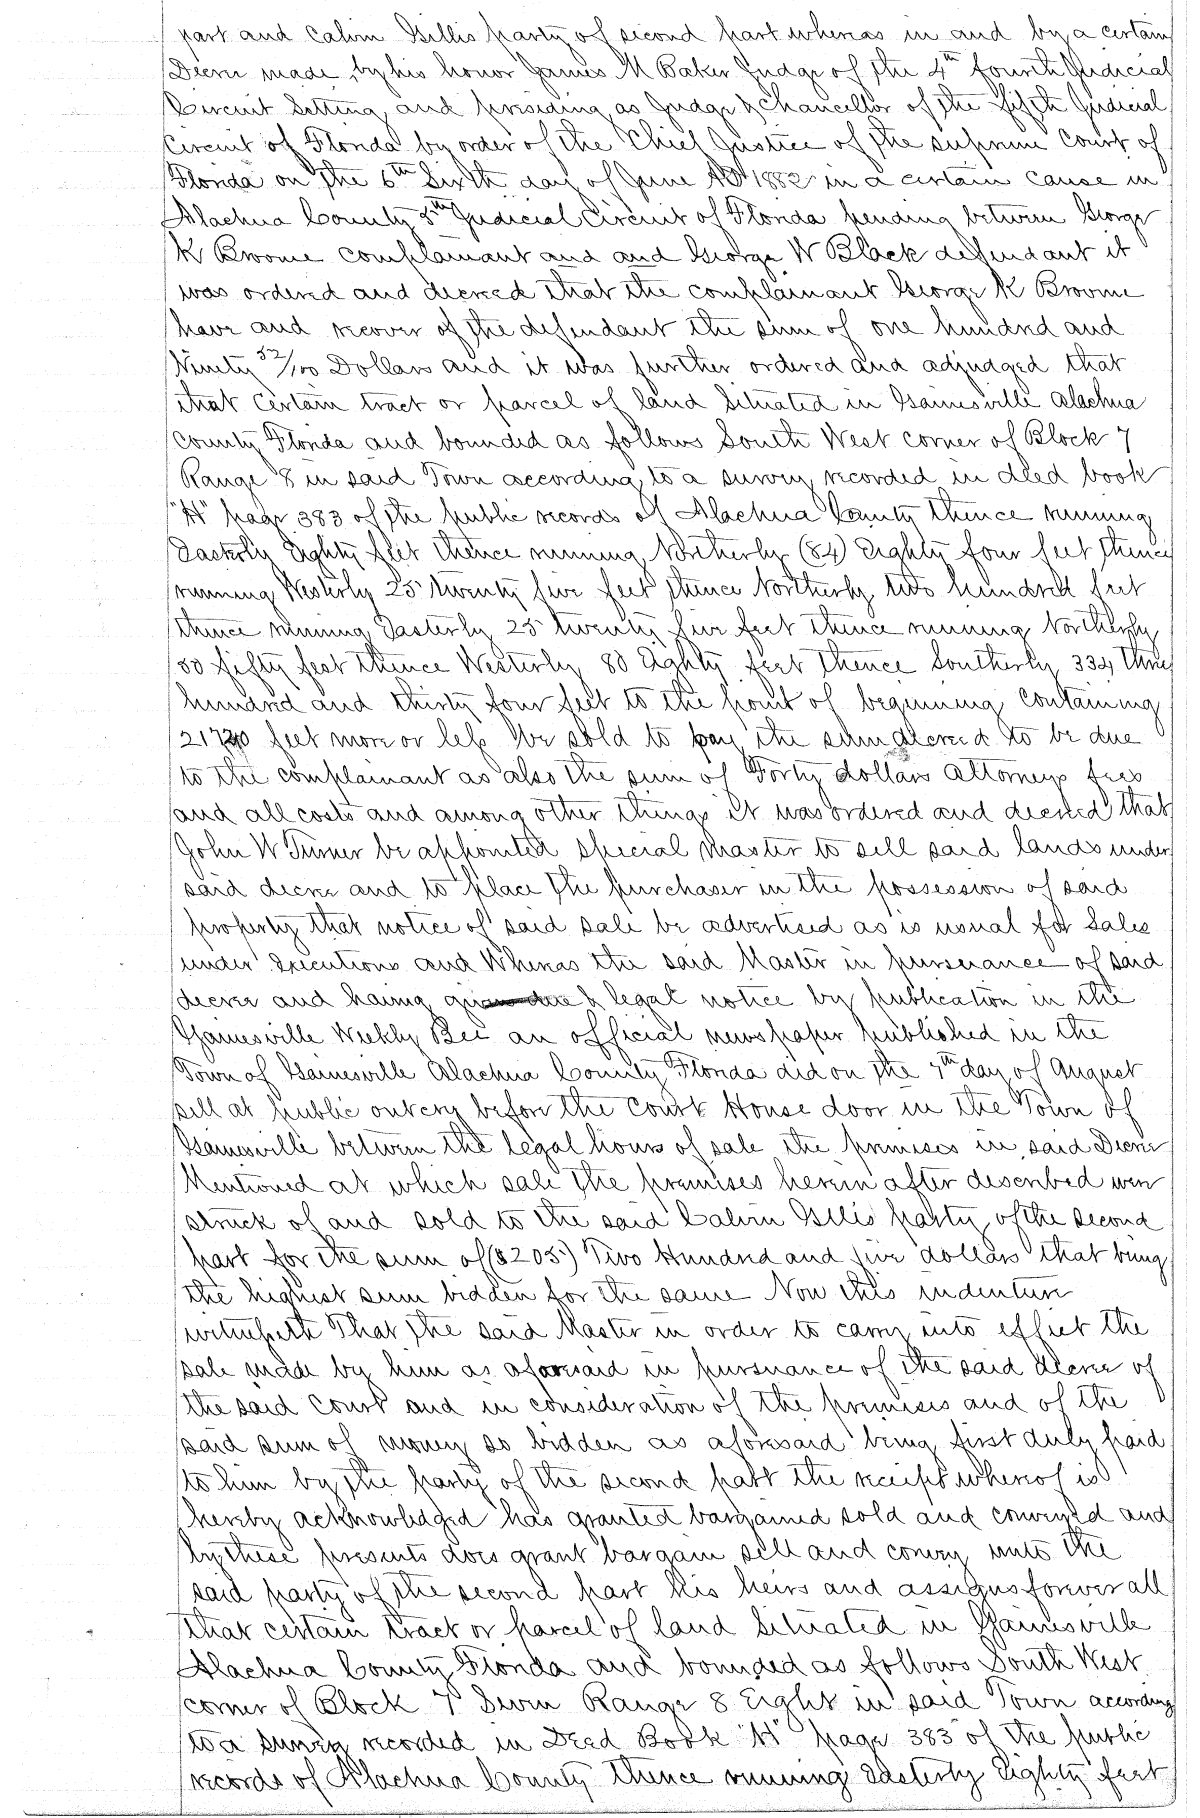 part and Calvin Gillis party of second part whereas in and by a certain
Decree made by his honor James M Baker Judge of the 4th fourth Judicial
Circuit Setting and presiding as Judge & Chancellor of the fifth Judicial
Circuit of Florida by order of the Chief Justice of the supreme Court of
Florida on the 6th Sixth day of June AD 1882 in a certain cause in
Alachua County 5th Judicial Circuit of Florida pending between George
K Broome complainant and and George W Black defendant it
was ordered and decreed that the complainant George K Broome
have and recover of the defendant the sum of one hundred and
Ninety 52/100 Dollars and it was further ordered and adjudged that
that certain tract or parcel of land Situated in Gainesville Alachua
County Florida and bounded as follows South West corner of Block 7
Range 8 in said Town according to a survey recorded in deed book
"H" page 383 of the public records of Alachua County thence running
Easterly Eighty feet thence running Northerly (84) Eighty four feet thence
running Westerly 25 twenty five feet thence Northerly two hundred feet
thence running Easterly 25 twenty five feet thence running Northerly
50 fifty feet thence Westerly 80 Eighty feet thence Southerly 334 three
hundred and thirty four feet to the point of beginning containing
21720 feet more or less be sold to pay the sum decreed to be due
to the complainant as also the sum of Forty dollars Attorneys fees
and all costs and among other things it was ordered and decreed that
John W Turner be appointed special Master to sell said lands under
said decree and to place the purchaser in the possession of said
property that notice of said sale be advertised as is usual for Sales
under executions and Whereas the said Master in pursuance of said
decree and having given due & legal notice by publication in the
Gainesville Weekly Bee an official newspaper published in the
Town of Gainesville Alachua County Florida did on the 7th day of August
sell at public outcry before the Court House door in the Town of
Gainesville between the legal hours of sale the premises in said Decree
Mentioned at which sale the premises herein after described were
struck of and sold to the said Calvin Gillis party of the second
part for the sum of ($205) Two Hundred and five dollars that being
the highest sum bidden for the same Now this indenture
witnesseth That the said Master in order to carry into effect the
sale made by him as aforesaid in pursuance of the said decree of
the said Court and in consideration of the premises and of the
said sum of money so bidden as aforesaid being first duly paid
to him by the party of the second part the receipt whereof is
hereby acknowledged has granted bargained sold and conveyed and
by these presents does grant bargain sell and convey unto the
said party of the second part his heirs and assigns forever all
that certain tract or parcel of land Situated in Gainesville
Alachua County Florida and bounded as follows South West
corner of Block 7 Seven Range 8 Eight in said Town according
to a survey recorded in Deed Book "H" page 383 of the public
records of Alachua County thence running Easterly Eighty feet